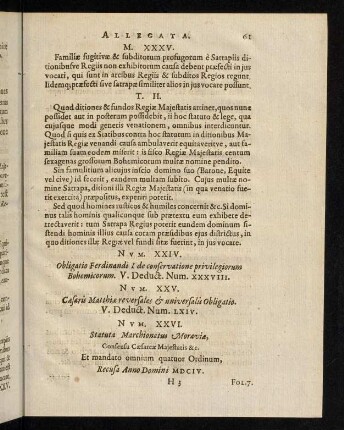 ALLEGATA. 61
M. XXXV.
Familiæ fugitivæ & subditorum profugorum è Satrapiis di-
tionibusve Regiis non exhibitorum causa debent præfecti in jus
vocari, qui sunt in arcibus Regiis & subditos Regios regunt.
Iidemq; præfecti sive satrapæ similiter alios in jus vocare possunt.
T. II.
Quod ditiones & fundos Regiæ Majestatis attinet, quos nunc
possidet aut in posterum possidebit, ii hoc statuto & lege, qua
cujusque modi generis venationem, omnibus interdicuntur.
Quod si quis ex Statibus contra hoc statutum in ditionibus Ma-
jestatis Regiæ venandi causa ambulaverit equitaveritve, aut fa-
miliam suam eodem miserit: is fisco Regiæ Majestatis centum
sexagenas grossorum Bohemicorum multæ nomine pendito.
Sin famulitium alicujus injussu domino suo (Barone, Equite
vel cive) id fecerit, eandem multam subito. Cujus multæ no-
mine Satrapa, ditioni illi Regiæ Majestatis (in qua venatio fue-
rit exercita) præpositus, experiri poterit.
Sed quod homines rusticos & humiles concernit &c. Si domi-
nus talis hominis qualicunque sub prætextu eum exhibere de-
trectaverit: tum Satrapa Regius poterit eundem dominum si-
stendi hominis illius causa coram præsidibus ejus districtus, in
quo ditiones illæ Regiæ vel fundi sitæ fuerint, in jus vocare.
NUM. XXIV.
Obligatio Ferdinandi I. de conservatione privilegiorum
Bohemicorum. V. Deduct. Num. XXXVIII.
NUM. XXV.
Cæsaris Matthiæ reversales & universalis Obligatio.
V. Deduct. Num. LXIV.
NUM. XXVI.
Statuta Marchionatus Moraviæ,
Consensu Cæsareæ Majestatis &c.
Et mandato omnium quatuor Ordinum,
Recusa Anno Domini MDCIV.
H 3 FOL. 7.